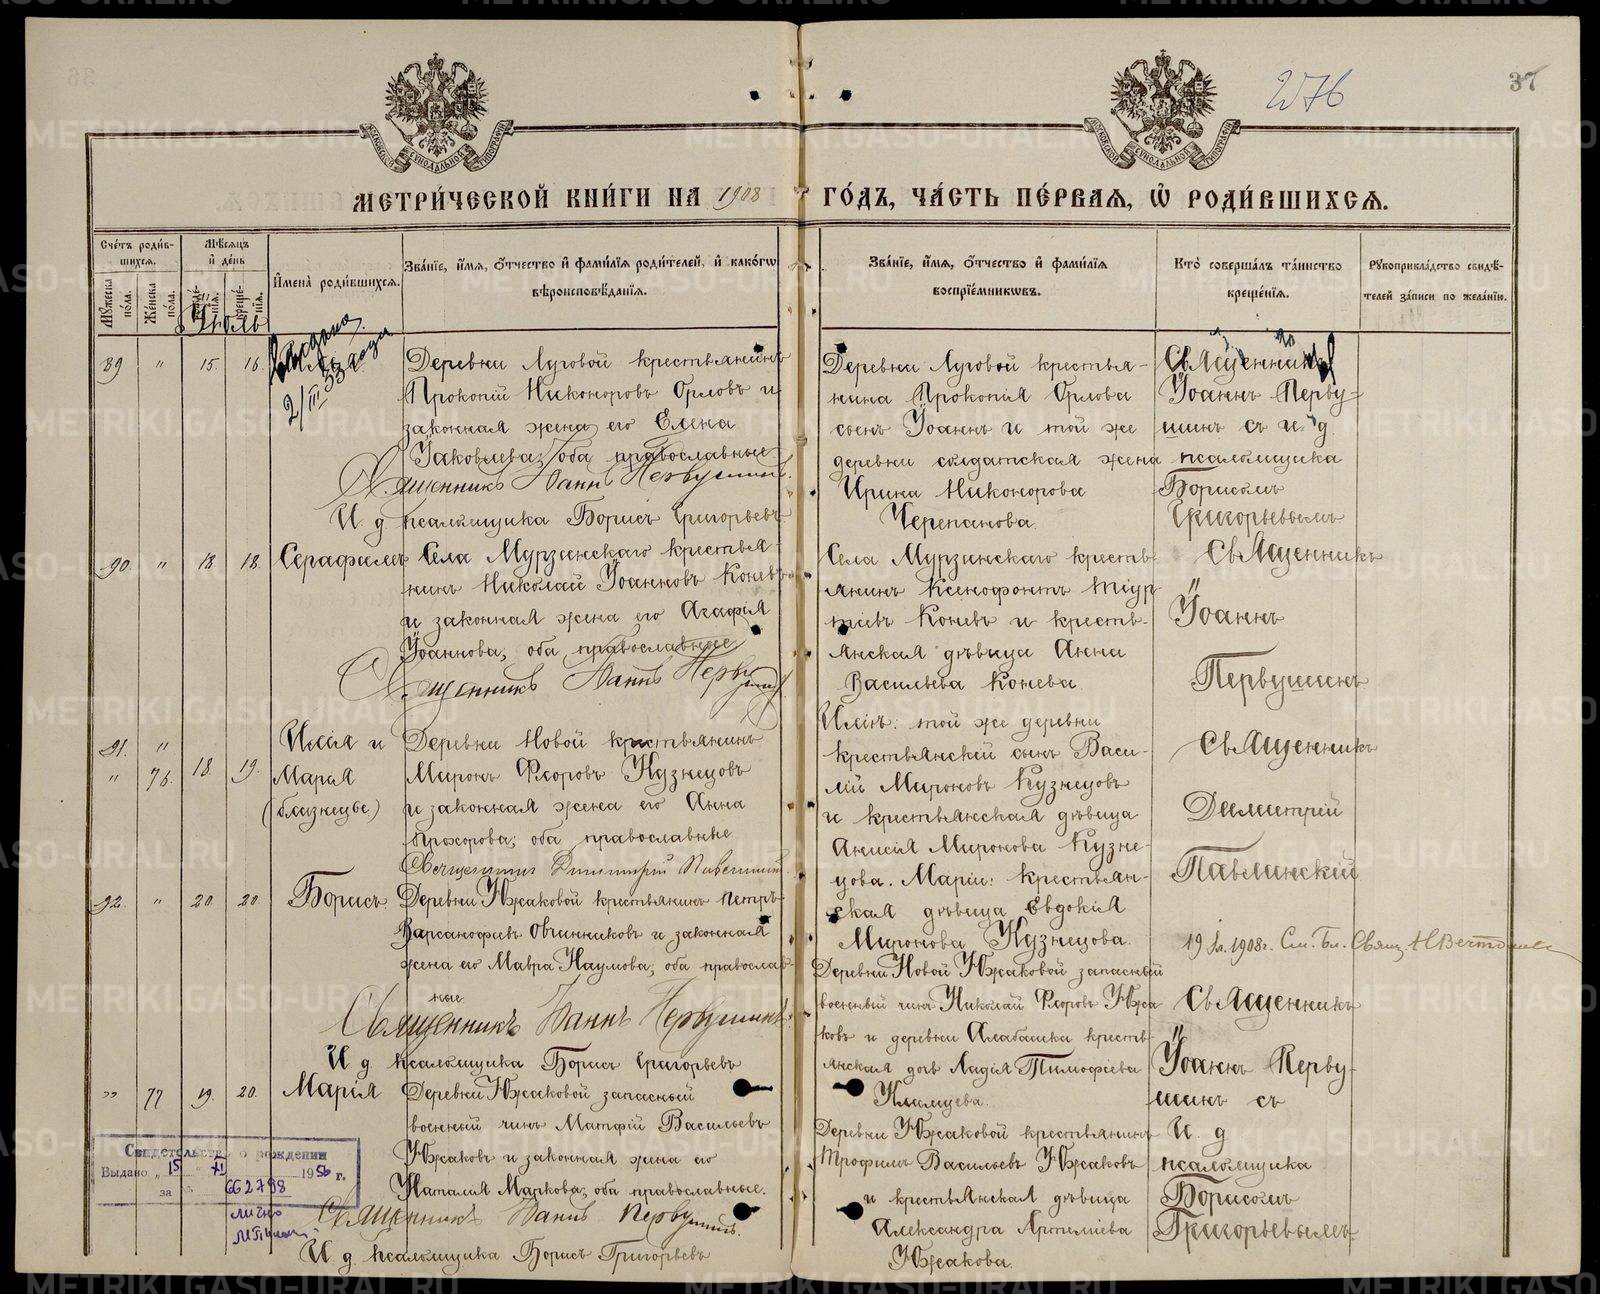 276
37
МЕТРИ́ЧЕСКОЙ КНИ́ГИ НА 1908 ГО́ДЪ, ЧА́СТЬ ПЕ́РВАЯ, Ѡ҆ РОДИ́ВШИХСЯ.
Сче́тъ роди́вшихся.
Мꙋ́жеска по́ла.
Же́нска по́ла.
Мѣ́сяцъ и҆ де́нь
рожде́нїя.
креще́нїя.
И҆мена̀ роди́вшихся.
Зва́нїе, и҆́мя, ѻ҆́тчество и҆ фами́лїя роди́телей, и҆ како́гѡ
вѣроисповѣ́данїя.
Зва́нїе, и҆́мя, ѻ҆́тчество и҆ фами́лїя
воспрїе́мникѡвъ.
Кто̀ соверша́лъ та́инство
креще́нїя.
Рꙋкоприкла́дство свидѣ́-
телей за́писи по жела́нїю.
Іюль
89 " 15. 16.
2/III 33 года
Деревни Луговой крестьянинъ
Прокопій Никоноровъ Орловъ и
законная жена его Елена
Іаковлева; оба православные
Священникъ Іоаннъ Первушинъ
И. д. псаломщика Борисъ Григорьевъ
Деревни Луговой крестья-
нина Прокопія Орлова
сынъ Іоаннъ и той же
деревни солдатская жена
Ирина Никонорова
Черепанова.
Священникъ
Іоаннъ Перву-
шинъ съ и. д.
псаломщика
Борисомъ
Григорьевымъ
90. " 18 18. Серафимъ
Села Мурзинскаго крестья-
нинъ Николай Іоанновъ Коневъ
и законная жена его Агафія
Іоаннова; оба православные
Священникъ Іоаннъ Первушинъ
Села Мурзинскаго кресть-
янинъ Ксенофонтъ
Коневъ и кресть-
янская дѣвица Анна
Васильева Конева
Священникъ
Іоаннъ
Первушинъ
91. "
" 76. 18. 19.
Илія и
Марія
(близнецы)
Деревни Новой крестьянинъ
Миронъ Флоровъ Кузнецовъ
и законная жена его Анна
Прохорова; оба православные
Священникъ Димитрій Павлинскій
Иліи: той же деревни
крестьянскій сынъ Васи-
лій Мироновъ Кузнецовъ
и крестьянская дѣвица
Анисія Миронова Кузне-
цова. Маріи: крестьян-
ская дѣвица Евдокія
Миронова Кузнецова.
Священникъ
Димитрій
Павлинскій
92. " 20. 20. Борисъ.
Деревни Южаковой крестьянинъ Петръ
Варсанофіевъ Овчинниковъ и законная
жена его Мавра Наумова; оба православ-
ные.
Священникъ Іоаннъ Первушинъ
И. д. псаломщика Борисъ Григорьевъ
Деревни Новой Южаковой запасный
военный чинъ Николай Флоровъ Южа-
ковъ и деревни Алабашка кресть-
янская дочь Лидія Тимофіева
19 1908г. См. Бл. Свящ.
Священникъ
Іоаннъ Перву-
шинъ съ
И. д.
псаломщика
Борисомъ
Григорьевымъ
" 77 19. 20. Марія
Деревни Южаковой запасный
военный чинъ Матфій Васильевъ
Южаковъ и законная жена его
Наталія Маркова; оба православные.
Священникъ Іоаннъ Первушинъ.
И. д. псаломщика Борисъ Григорьевъ
Деревни Южаковой крестьянинъ
Трофимъ Васильевъ Южаковъ
и крестьянская дѣвица
Александра Артеміева
Южакова.
Свидетельство о рождении
Выдано „15" VI 1956 г.
за № 662798
лично
METRIKI.GASO-URAL.RU